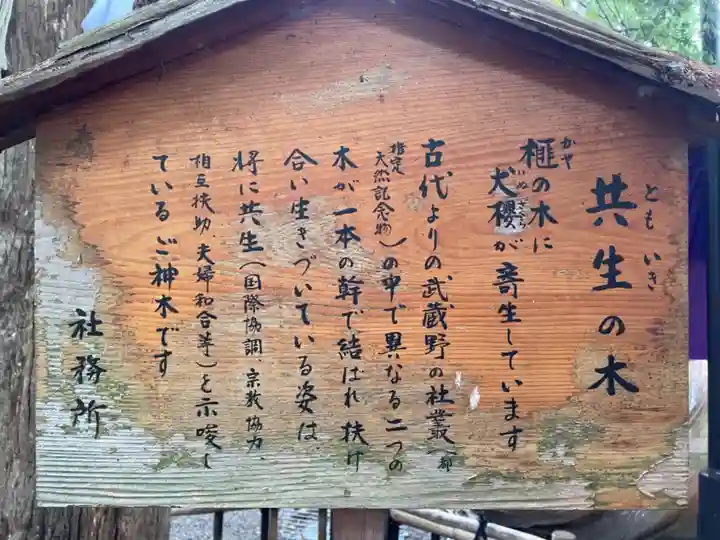 ともいき
共生の木
かや
榧の木に
いぬざくら
犬櫻が寄生しています
古代よりの武蔵野の社叢(一部
指定
天然記念物)の中で異なる二つの
木が一本の幹で結ばれ扶け
合い生きづいている姿は
将に共生(国際協調、宗教協力、
相互扶助 夫婦和合等)を示唆し
ているご神木です
社務所